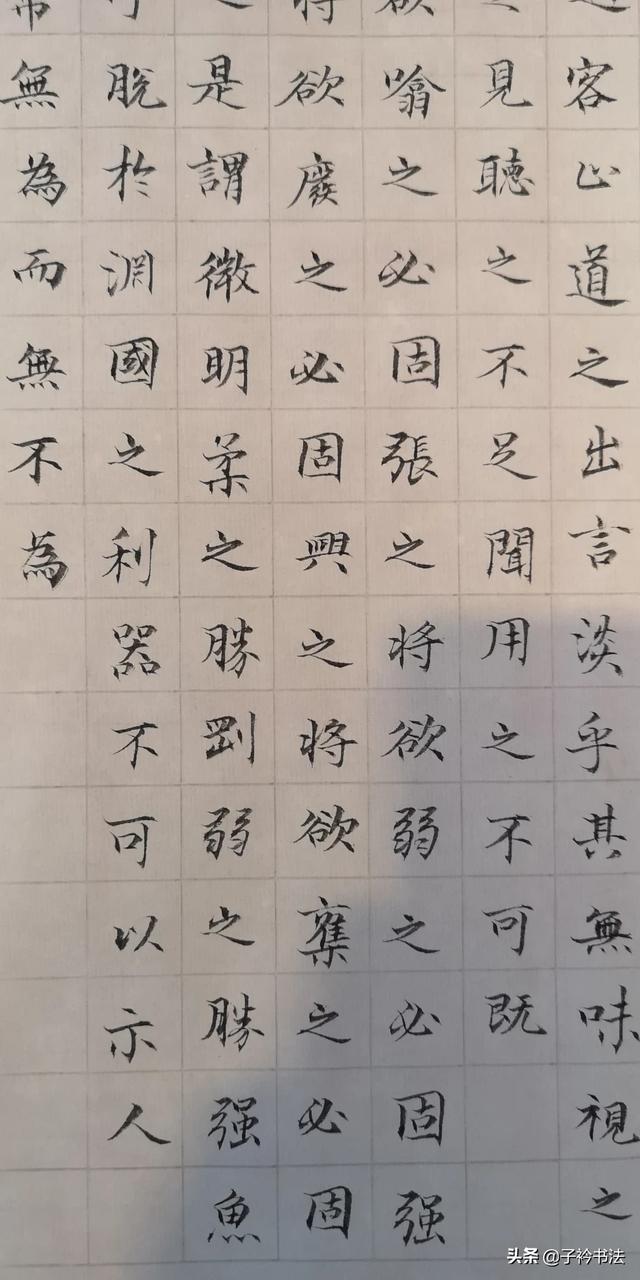 客止道之出言淡乎其無味視之
見聽之不足聞用之不可既
欲噏之必固張之将欲弱之必固强
将欲廢之必固興之将欲奪之必固
之是謂微明柔之勝剛弱之勝强魚
可脫於淵國之利器不可以示人
常無為而無不為
头条 @子衿书法